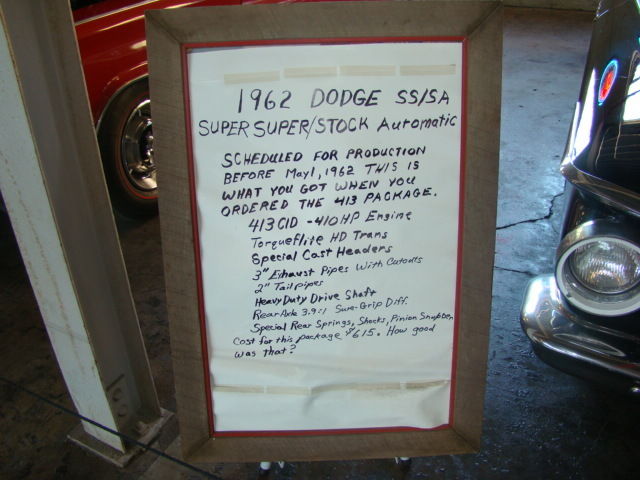 1962 DODGE SS/SA
SUPER SUPER/STOCK Automatic
SCHEDULED FOR PRODUCTION
BEFORE May 1, 1962 THIS IS
WHAT YOU GOT WHEN YOU
ORDERED THE 413 PACKAGE.
413 CID - 410 HP Engine
Torqueflite HD Trans
Special Cast Headers
3" Exhaust Pipes With Cutouts
2" Tailpipes
Heavy Duty Drive Shaft
Rear Axle 3.9:1 Sure-Grip Diff.
Special Rear Springs, Shocks, Pinion
Cost for this package $615. How good
was that?